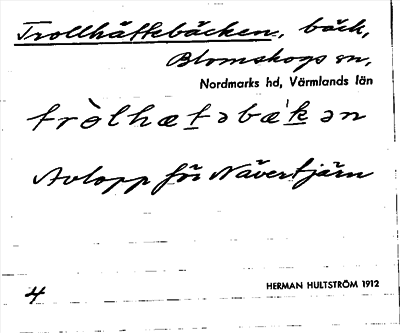 Trollhättebäcken, bäck,
Blomskogs sn,
Nordmarks hd, Värmlands län
tròlhætəbæ'kən
Avlopp för Nävertjärn
4
HERMAN HULTSTRÖM 1912